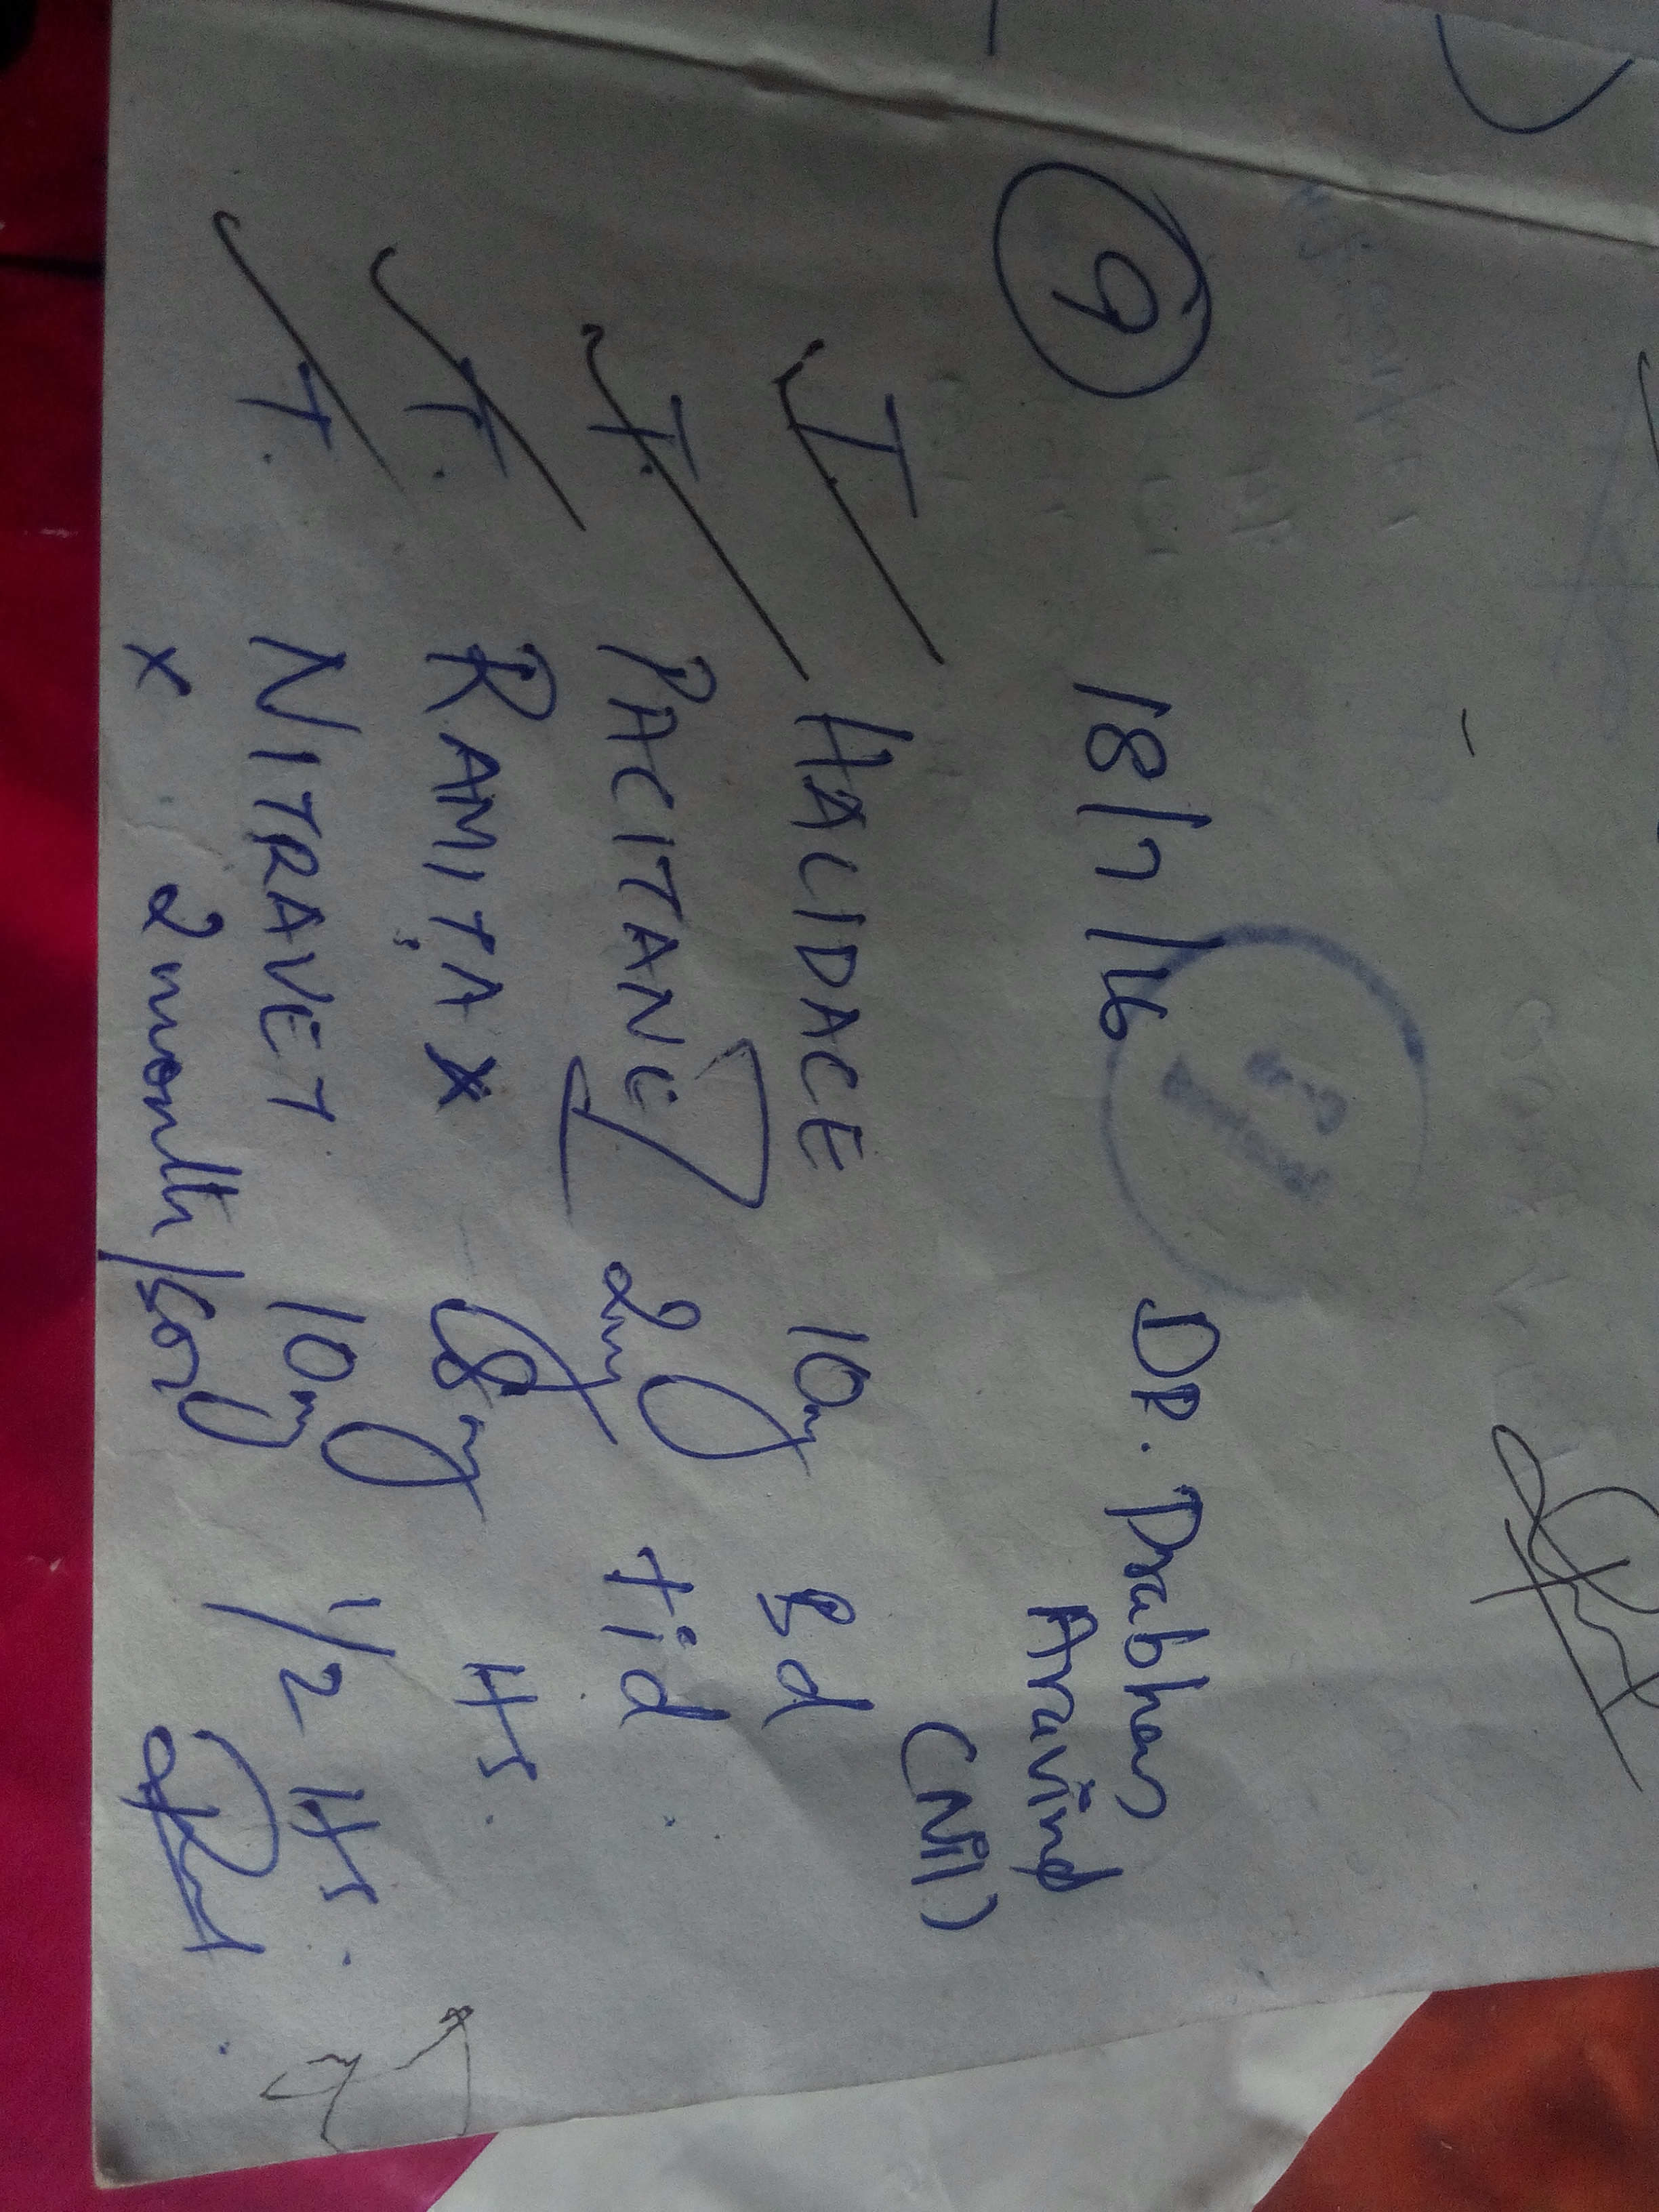 9
18/7/16 DR. Prabhas
Aravind
(NIL)
T. HALIDACE 10mg Bd
T. PACITANE 2mg tid
T. RAMITAX 8mg HS.
T. NITRAVET 10mg 1/2 HS.
x 2 month/60 day